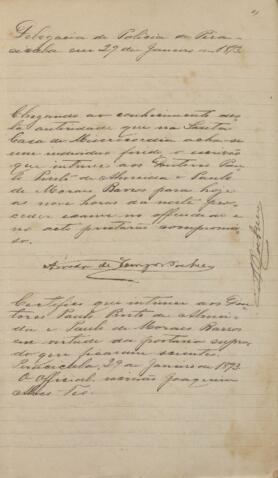 Delegacia de Policia de Pira-
cicaba em 29 de Janeiro de 1873.
Chegando ao conhecimento des-
ta autoridade que na Santa
Casa de Misericordia acha-se
um individuo ferido, o escrivão
que intime aos Doutores Pau-
lo Pinto de Almeida e Paulo
de Moraes Barros para hoje
as nove horas da noite pro-
ceder exame no offendido e
no acto prestarão compromis-
so.
Certifico que intimei aos Dou-
tores Paulo Pinto de Almei-
da e Paulo de Moraes Barros
em virtude da portaria supra,
do que ficaram scientes.
Piracicaba, 29 de Janeiro de 1873.
O Official, escrivão Joaquim